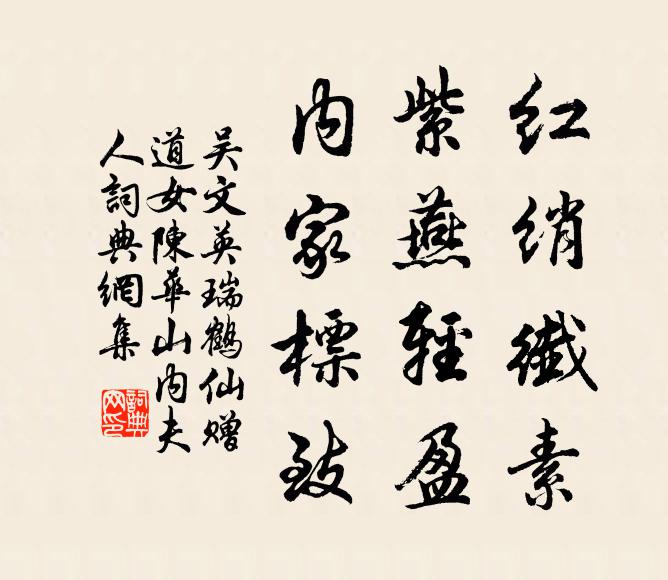 红绡纖素
紫燕輕盈
内家標致
吴文英瑞鶴仙赠
道女陳華山内夫
人詞典網集
詞典网印